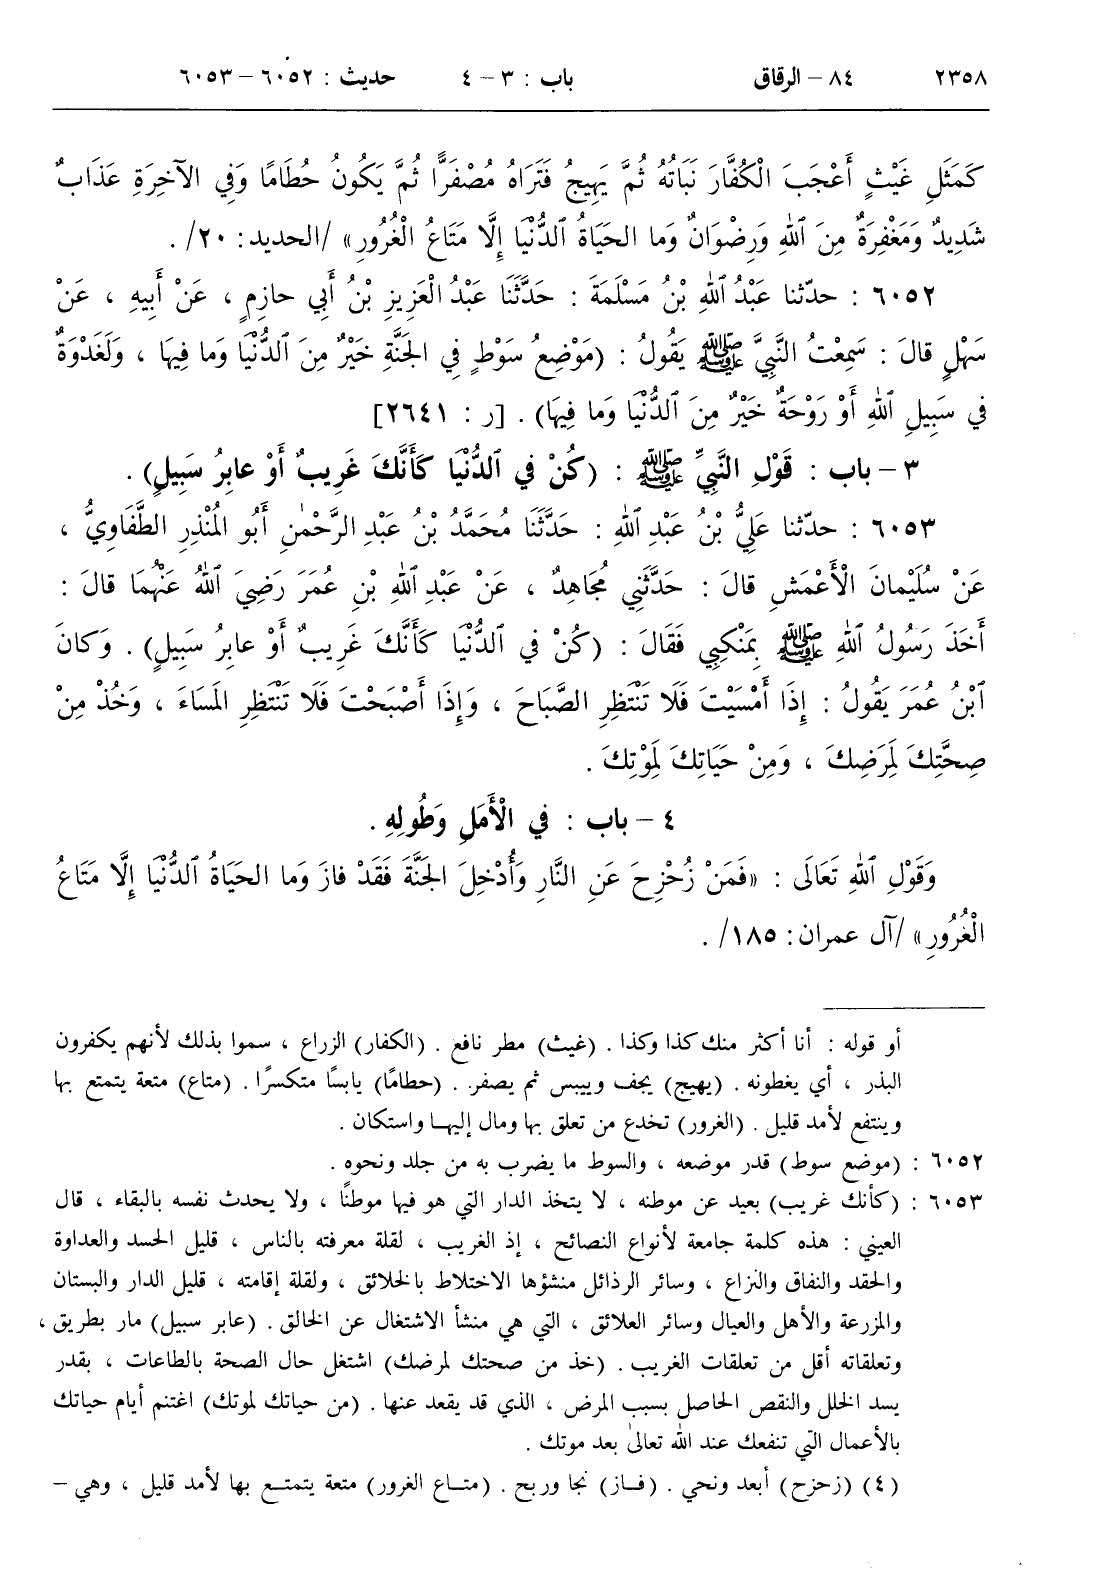 ٢٣٥٨ ٨٤ – الرقاق باب : ٣ – ٤ حديث : ٦٠٥٢ – ٦٠٥٣
كَمَثَلِ غَيْثٍ أَعْجَبَ الْكُفَّارَ نَبَاتُهُ ثُمَّ يَهِيجُ فَتَرَاهُ مُصْفَرًّا ثُمَّ يَكُونُ حُطَامًا وَفِي الآخِرَةِ عَذَابٌ
شَدِيدٌ وَمَغْفِرَةٌ مِنَ ٱللهِ وَرِضْوَانٌ وَما الحَيَاةُ ٱلدُّنْيَا إِلَّا مَتَاعُ الْغُرُورِ» /الحديد: ٢٠/.
٦٠٥٢ : حدّثنا عَبْدُ ٱللهِ بْنُ مَسْلَمَةَ : حَدَّثَنَا عَبْدُ الْعَزِيزِ بْنُ أَبِي حازِمٍ ، عَنْ أَبِيهِ ، عَنْ
سَهْلٍ قالَ : سَمِعْتُ النَّبِيَّ ﷺ يَقُولُ : (مَوْضِعُ سَوْطٍ فِي الجَنَّةِ خَيْرٌ مِنَ ٱلدُّنْيَا وَما فِيهَا ، وَلَغَدْوَةٌ
في سَبِيلِ ٱللهِ أَوْ رَوْحَةٌ خَيْرٌ مِنَ ٱلدُّنْيَا وَما فِيهَا) . [ر : ٢٦٤١]
٣ – باب : قَوْلِ النَّبِيِّ ﷺ : (كُنْ في ٱلدُّنْيَا كَأَنَّكَ غَرِيبٌ أَوْ عابِرُ سَبِيلٍ) .
٦٠٥٣ : حدّثنا عَلِيُّ بْنُ عَبْدِ ٱللهِ : حَدَّثَنَا مُحَمَّدُ بْنُ عَبْدِ الرَّحْمٰنِ أَبُو المُنْذِرِ الطَّفَاوِيُّ ،
عَنْ سُلَيْمانَ الْأَعْمَشِ قالَ : حَدَّثَنِي مُجَاهِدٌ ، عَنْ عَبْدِ ٱللهِ بْنِ عُمَرَ رَضِيَ ٱللهُ عَنْهُمَا قالَ :
أَخَذَ رَسُولُ ٱللهِ ﷺ بِمَنْكِبِي فَقَالَ : (كُنْ في ٱلدُّنْيَا كَأَنَّكَ غَرِيبٌ أَوْ عابِرُ سَبِيلٍ) . وَكانَ
ٱبْنُ عُمَرَ يَقُولُ : إِذَا أَمْسَيْتَ فَلَا تَنْتَظِرِ الصَّبَاحَ ، وَإِذَا أَصْبَحْتَ فَلَا تَنْتَظِرِ المَسَاءَ ، وَخُذْ مِنْ
صِحَّتِكَ لِمَرَضِكَ ، وَمِنْ حَيَاتِكَ لِمَوْتِكَ .
٤ – باب : في الْأَمَلِ وَطُولِهِ .
وَقَوْلِ ٱللهِ تَعَالَى : «فَمَنْ زُحْزِحَ عَنِ النَّارِ وَأُدْخِلَ الجَنَّةَ فَقَدْ فازَ وَما الحَيَاةُ ٱلدُّنْيَا إِلَّا مَتَاعُ
الْغُرُورِ» /آل عمران: ١٨٥/ .
أو قوله : أنا أكثر منك كذا وكذا . (غيث) مطر نافع . (الكفار) الزراع ، سموا بذلك لأنهم يكفرون
البذر ، أي يغطونه . (يهيج) يجف وييبس ثم يصفر . (حطامًا) يابسًا متكسرًا . (متاع) متعة يتمتع بها
وينتفع لأمد قليل . (الغرور) تخدع من تعلق بها ومال إليها واستكان .
٦٠٥٢ : (موضع سوط) قدر موضعه ، والسوط ما يضرب به من جلد ونحوه .
٦٠٥٣ : (كأنك غريب) بعيد عن موطنه ، لا يتخذ الدار التي هو فيها موطنًا ، ولا يحدث نفسه بالبقاء ، قال
العيني : هذه كلمة جامعة لأنواع النصائح ، إذ الغريب ، لقلة معرفته بالناس ، قليل الحسد والعداوة
والحقد والنفاق والنزاع ، وسائر الرذائل منشؤها الاختلاط بالخلائق ، ولقلة إقامته ، قليل الدار والبستان
والمزرعة والأهل والعيال وسائر العلائق ، التي هي منشأ الاشتغال عن الخالق . (عابر سبيل) مار بطريق ،
وتعلقاته أقل من تعلقات الغريب . (خذ من صحتك لمرضك) اشتغل حال الصحة بالطاعات ، بقدر
يسد الخلل والنقص الحاصل بسبب المرض ، الذي قد يقعد عنها . (من حياتك لموتك) اغتنم أيام حياتك
بالأعمال التي تنفعك عند الله تعالى بعد موتك .
(٤) (زحزح) أبعد ونحي . (فاز) نجا وربح . (متاع الغرور) متعة يتمتع بها لأمد قليل ، وهي –